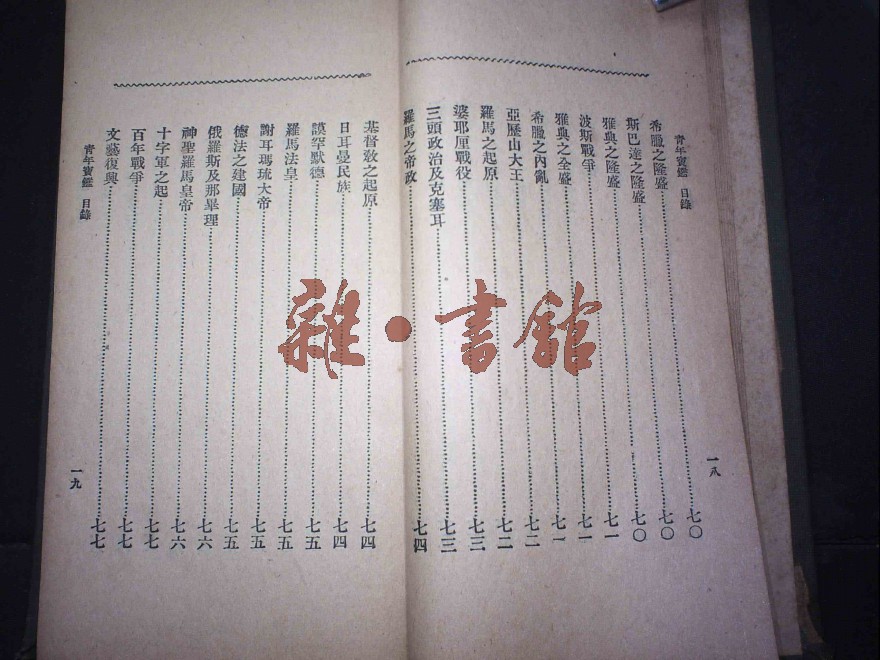 青年寶鑑 目錄
一八
希臘之隆盛……七〇
斯巴達之隆盛……七〇
雅典之隆盛……七〇
波斯戰爭……七一
雅典之全盛……七一
希臘之內亂……七一
亞歷山大王……七二
羅馬之起原……七二
婆耶厘戰役……七三
三頭政治及克塞耳……七三
羅馬之帝政……七四
基督教之起原……七四
日耳曼民族……七四
謨罕默德……七五
羅馬法皇……七五
謝耳瑪琉大帝……七五
德法之建國……七五
俄羅斯及那畢理……七六
神聖羅馬皇帝……七六
十字軍之起……七七
百年戰爭……七七
文藝復興……七七
青年寶鑑 目錄
一九
雜·書館